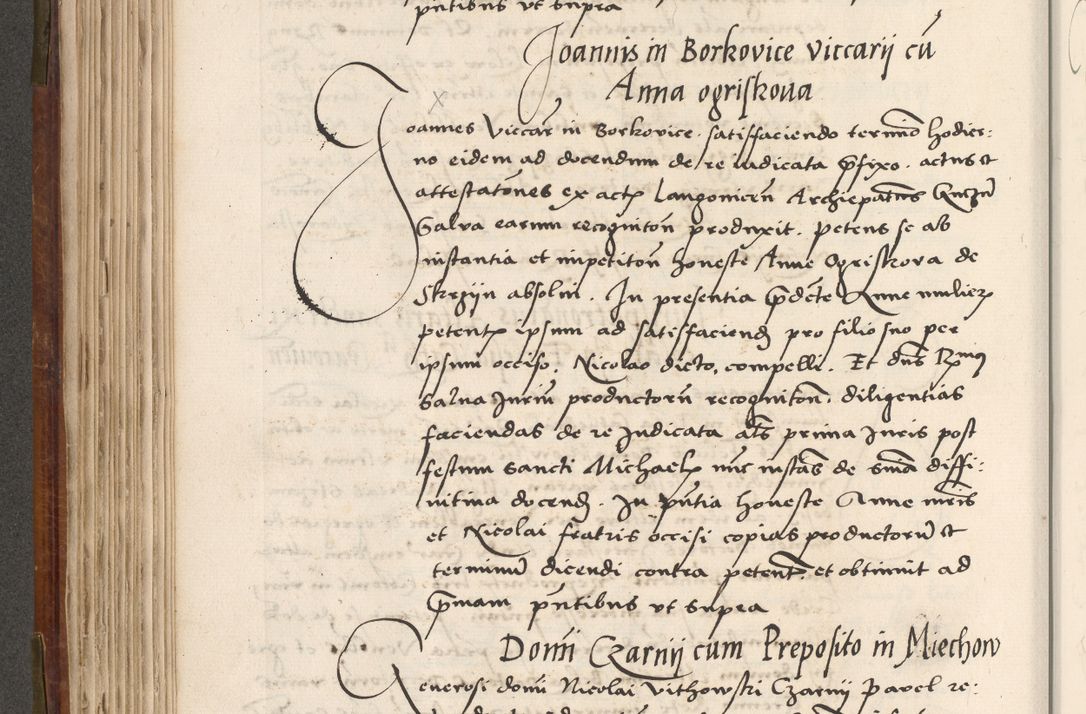 pn̄tibus vt supra
Joannis in Borkovice viccarij cū
Anna ogriskoua
Joannes Viccar̄ in Borkovice. satisfaciendo termīo hodier:
no eidem ad docendum de re iudicata p̄fixo. actus et
attestatōnes ex act̄ Langonicen̄
Salva earum recognitōn produxit. petens se ab
instantia et impetitōn honeste Anne Ogriskova de
absolui. In presentia p̄dc̄te Anne mulier̄
petent̄ ipsum ad satisfaciend̄ pro filio suo per
ipsum occiso, Nicolao dicto, compelli. Et dn̄s R̄mus
salua Jurīu productorū recognitōn, diligentias
faciendas de re Judicata al̄s prima Juris post
festum sancti Michael̄ nūc instās de sn̄ia diffi:
nitiua docend̄. In pn̄tia honeste Anne mr̄is
et Nicolai fratris occisi copias productorū et
terminū dicendi contra petent̄. et obtinuit ad
p̄mam pn̄tibus vt supra
Domī Czarnij cum Preposito in Miechow
Generosi domī Nicolai Vithowski Czarnij Pavel re: